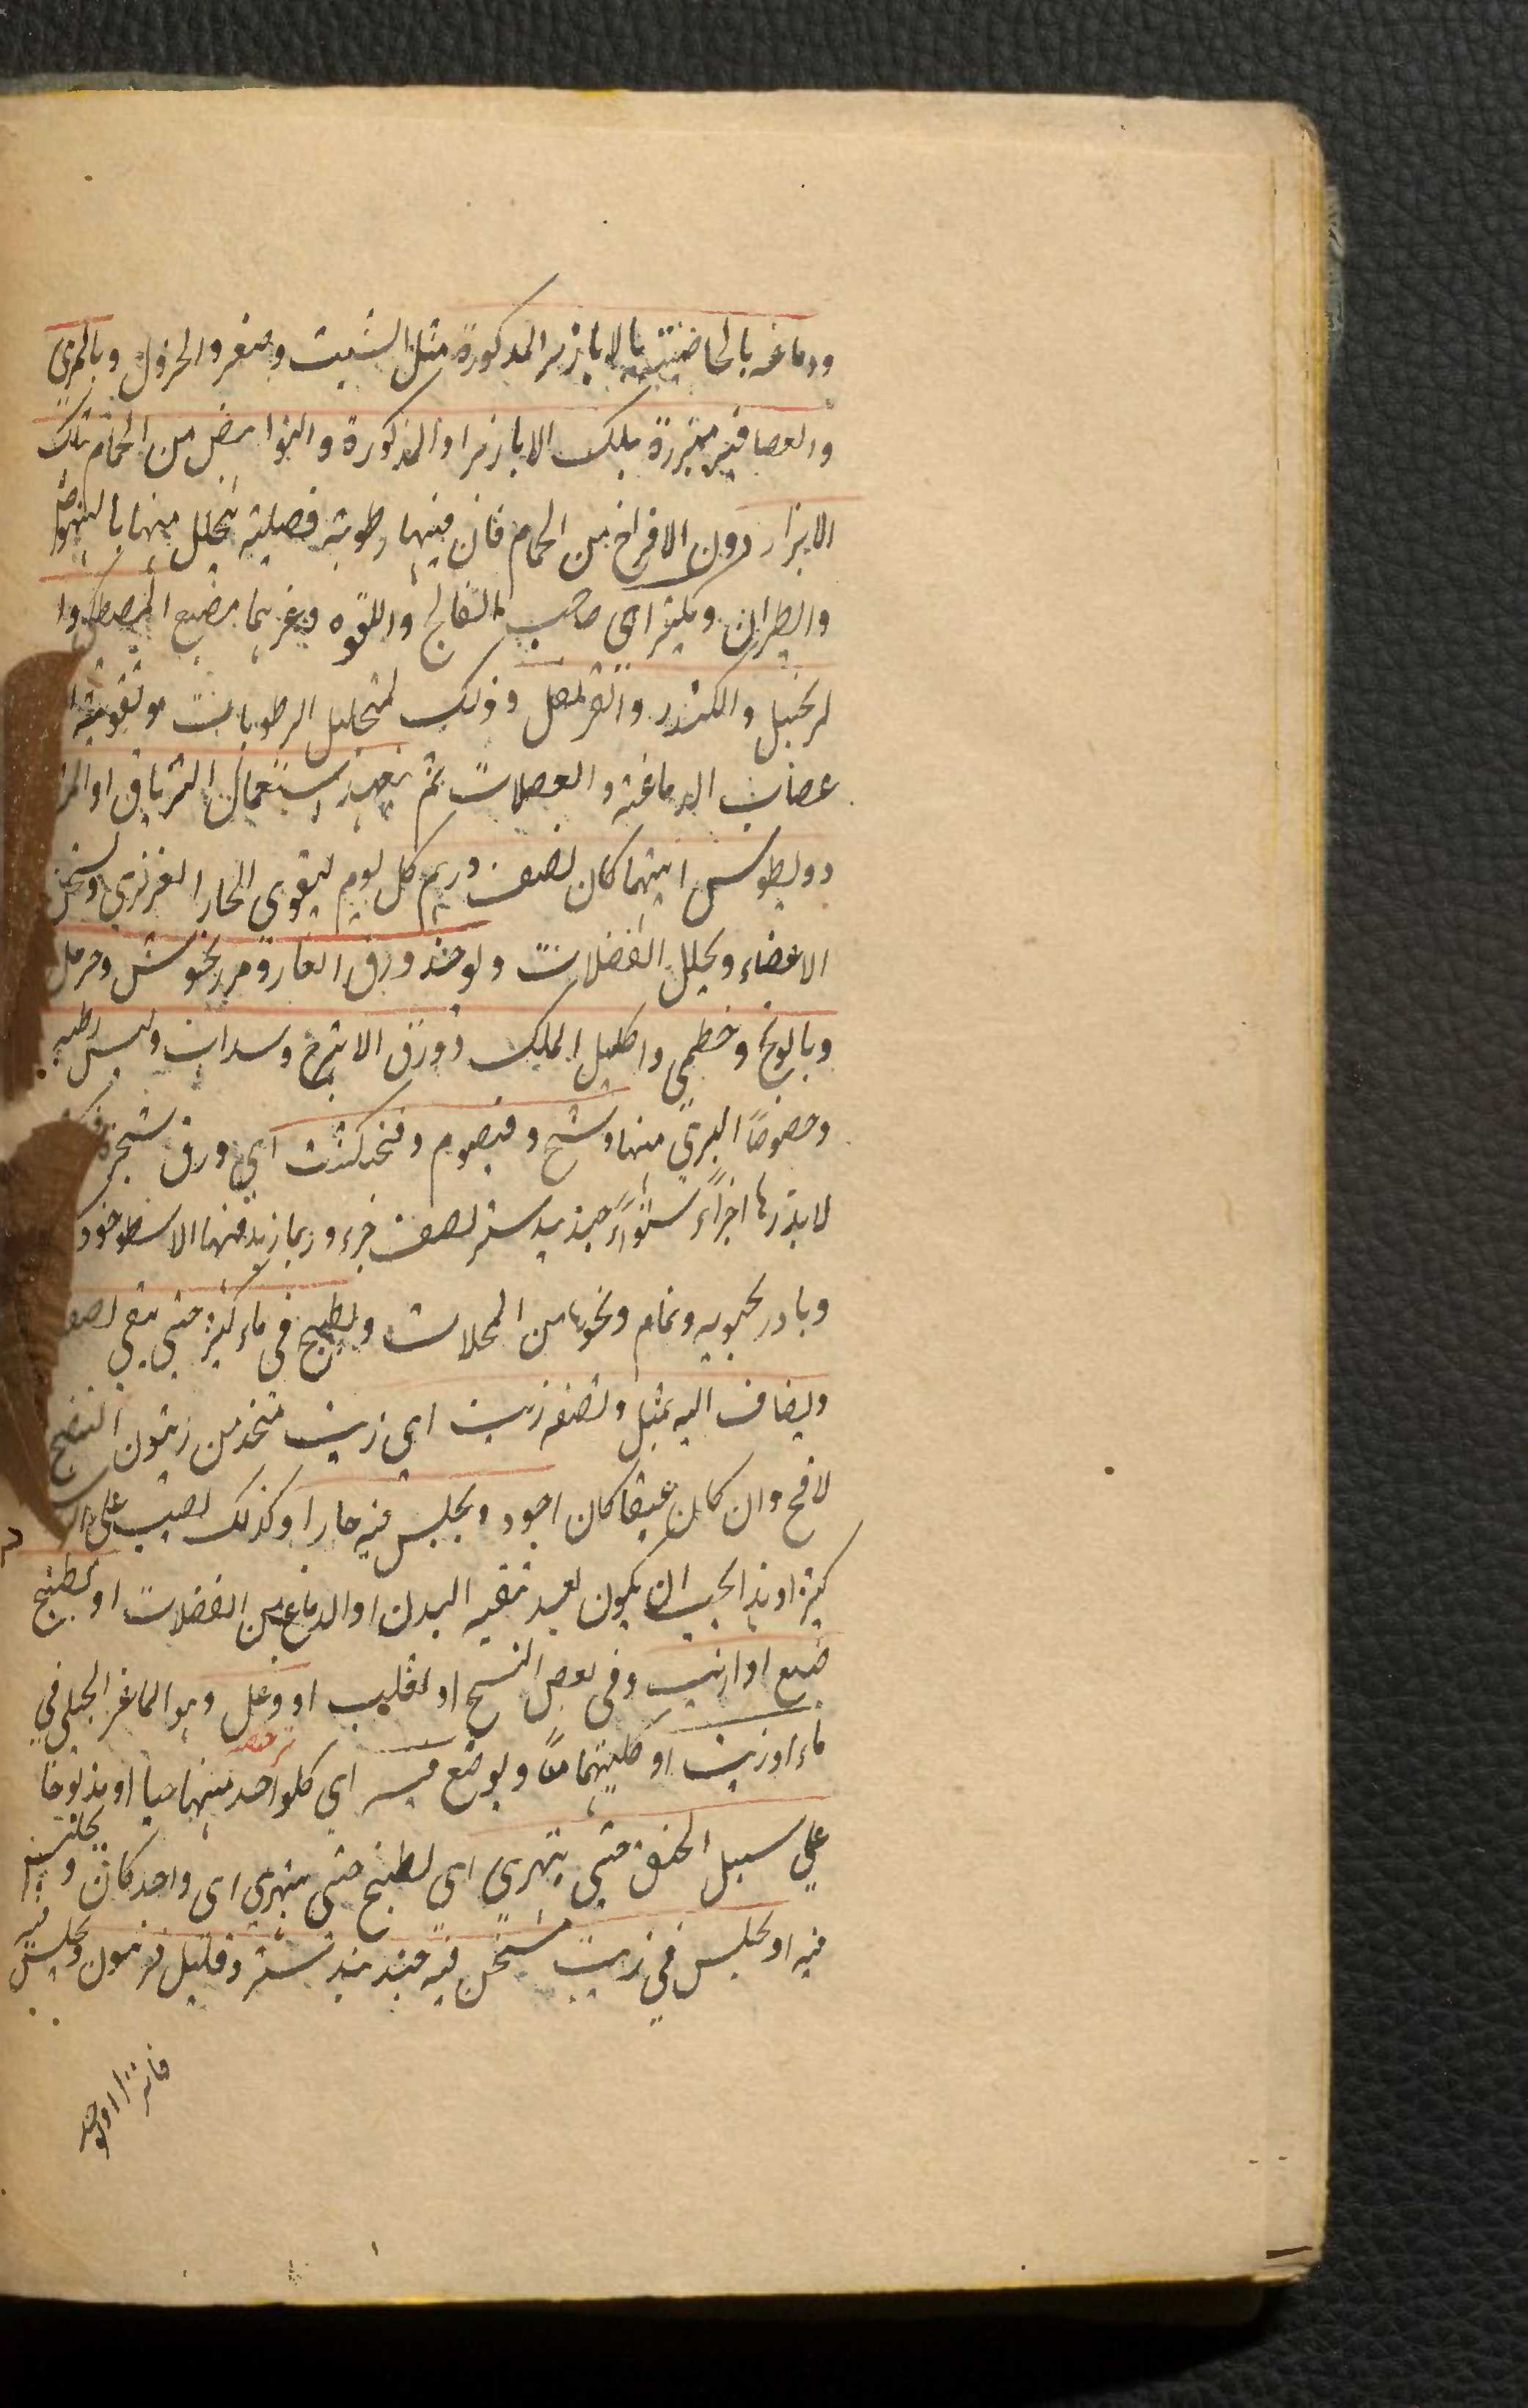 ودماغه بالخاصية بالابازير المذكورة مثل الشبت وصعتر والخردل وبالمري
والعصافير مبزرة بتلك الابازير المذكورة والنواهض من الحمام بتلك
الابزار دون الافراخ من الحمام فان فيها رطوبة فضلية يتحلل منها بالنهوض
والطيران ويكثر اى صاحب الفالج واللقوه وغيرهما مضغ المصطكى وا
لزنجبيل والكندر والقرنفل وذلك لتحليل الرطوبات وتقوية
عضاب الدماغية والعضلات ثم بعد استعمال الترياق او المثر
دوليطوس ايهما كان نصف درهم كل يوم ليقوى الحار الغريزي ويسخن
الاعضاء ويحلل الفضلات ويوخذ ورق الغار ومرزنجوش وحرمل
وبابونج وخطمي واكليل الملك وورق الاترج وسداب رطب
وخصوصا البري منها وشيح وقيصوم وفنجنكشت اي ورق شجرة
لا بذرها اجزاء سواء جندبيدستر نصف جزء وربما زيد فيها الاسطوخود
وبادرنجبويه ونمام ونحوها من المحللات ويطبخ في ماء كثير حتى يبقى نصف
ويضاف اليه بمثل ونصفه زيت اى زيت متخذ من زيتون النضيج
لا فج وان كان عتيقا كان اجود ويجلس فيه حارا وكذلك يصب على
كثيرا وهذا يجب ان يكون بعد تنقيه البدن او الدماغ من الفضلات او يطبخ
ضبع او ارنب وفي بعض النسخ او ثعلب او وعل وهو الماعز الجبلى في
ماء او زيت او كليهما معا ويوضع فيه اي كلواحد منهما حيا او مذبوحا
على سبيل الخنق حتى يتهرى اى يطبخ حتى يتهرى اى واحد كان و يجلس
فيه او يجلس في زيت مسخن فيه جندبيدستر وقليل فرفيون ويجلس فيه